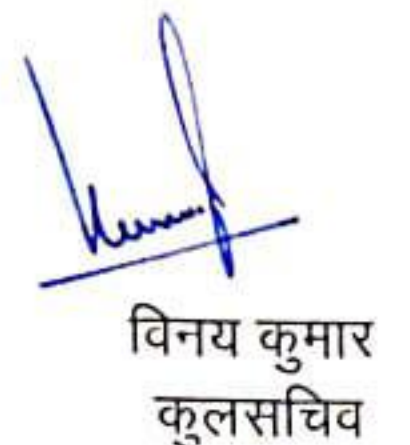 विनय कुमार
कुलसचिव